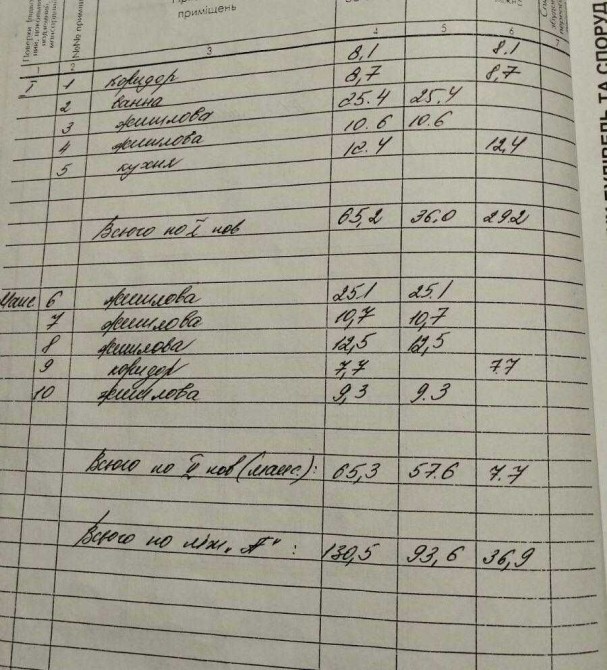 приміщень
№№ приміщ
1 2 3 4 5 6 7
I 1 коридор 8,1 8.1
2 ванна 8,7 8,7
3 житлова 25.4 25.4
4 житлова 10.6 10.6
5 кухня 12.4 12,4
Всього по I пов 65,2 36.0 29.2
Манс. 6 житлова 25.1 25.1
7 житлова 10,7 10,7
8 житлова 12,5 12,5
9 коридор 7,7 7.7
10 житлова 9,3 9.3
Всього по II пов (манс.): 65,3 57.6 7.7
Всього по літ. „А": 130,5 93,6 36,9
ТА СПОРУД